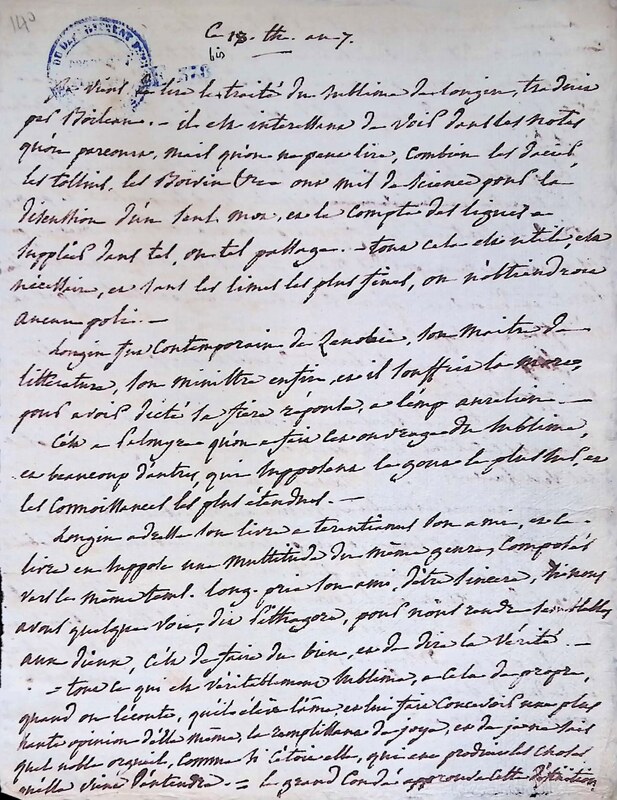 140
Ce 18. th. an 7.
bis
Je viens de lire le traité du Sublime de longin, traduit
par Boileau. - il est interessant de voir dans les notes
qu'on parcourt, mais qu'on ne peut lire, combien les dacier,
les tollius, les Boivin &c ont mis de science pour la
discussion d'un seul mot, et le compte des lignes a
suppléer dans tel, ou tel passage. - tout cela est utile, est
nécessaire, et sans les limes les plus fines, on n'obtiendroit
aucun poli. -
longin fut contemporain de Zenobie, son maitre de
littérature, son ministre enfin, et il souffrit la mort,
pour avoir dicté sa fière réponse, a l'emp aurelien. -
C'est a Palmyre qu'on a fait cet ouvrage du sublime,
et beaucoup d'autres, qui supposent le gout le plus sur, et
les connoissances les plus étendues. -
longin adresse son livre a terentianus son ami, et le
livre en suppose une multitude du même genre, composés
vers le même tems. long. prie son ami d'être sincere, si nous
avons quelque voie, dit Pithagore, pour nous rendre semblables
aux dieux, c'est de faire du bien, et de dire la vérité. -
- tout ce qui est véritablement sublime, a cela de propre,
quand on l'écoute, qu'il élève l'ame et lui fait concevoir une plus
haute opinion d'elle même, la remplissant de joye, et de je ne sais
quel noble orgueil, comme si c'etoit elle, qui eut produit les choses
qu'elle vient d'entendre. - le grand Condé approuva cette définition